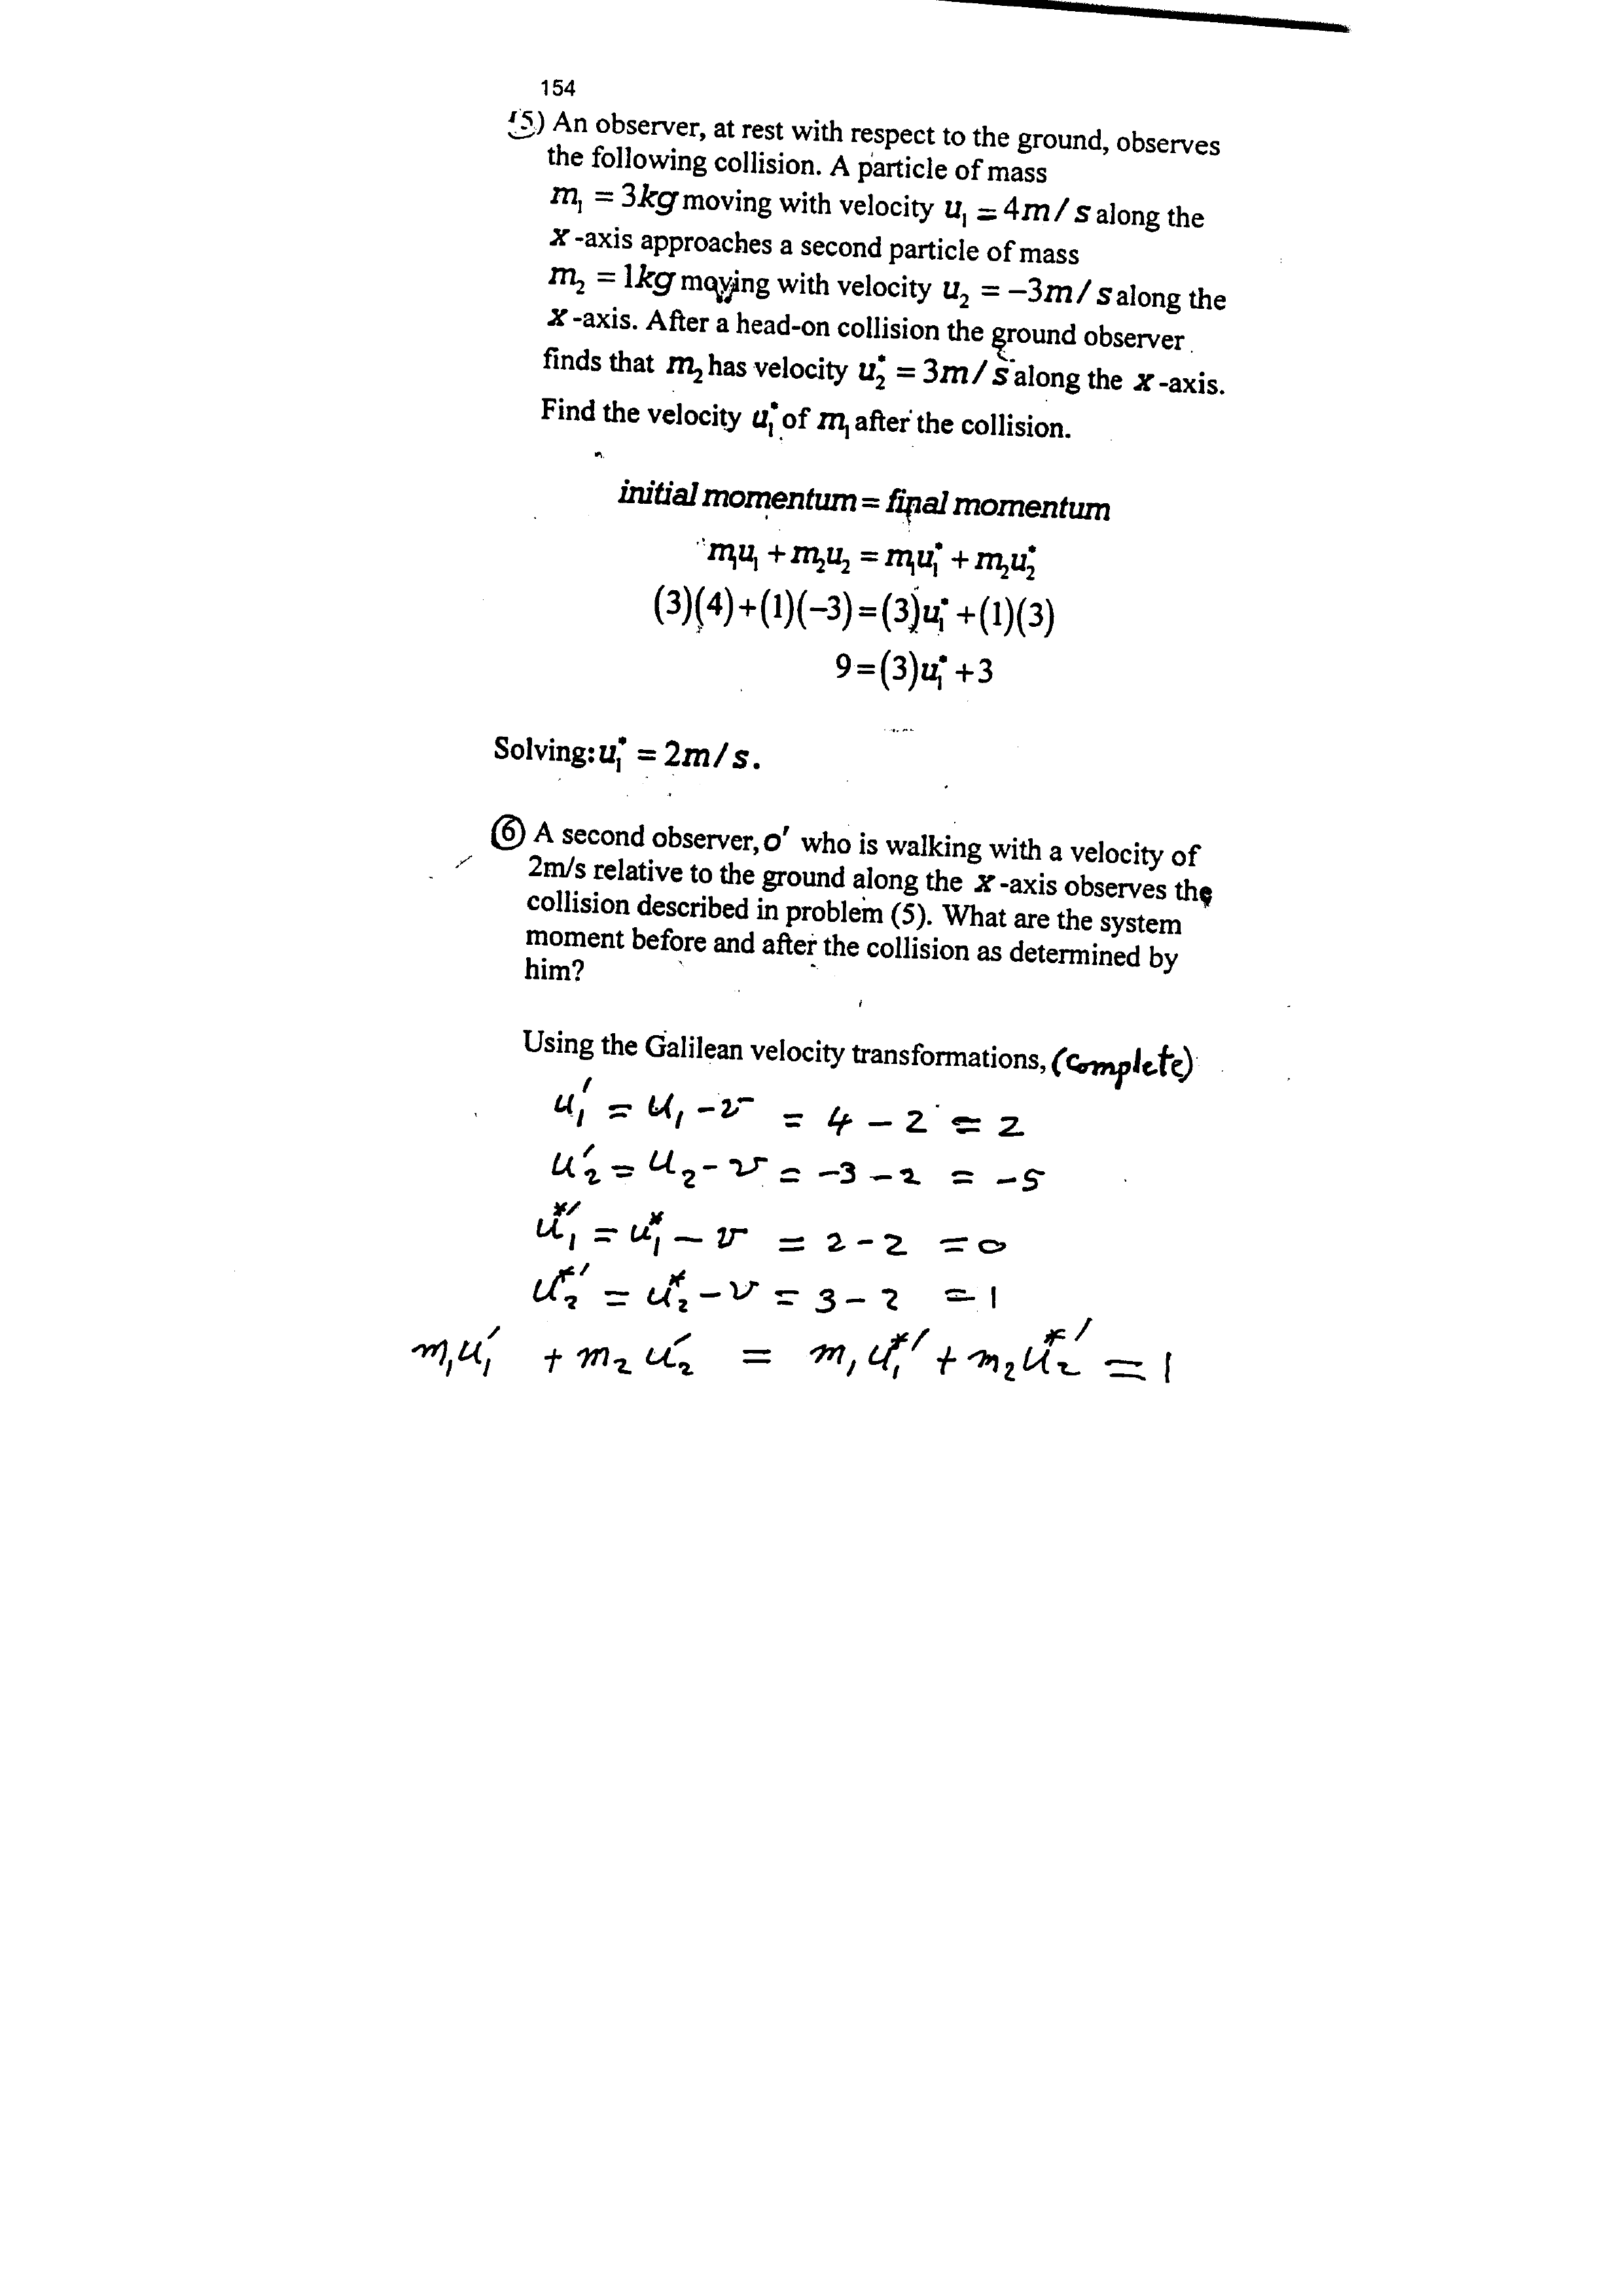 154
(5) An observer, at rest with respect to the ground, observes
the following collision. A particle of mass
m₁ = 3kg moving with velocity u₁ = 4m/s along the
x-axis approaches a second particle of mass
m₂ = 1kg moving with velocity u₂ = −3m/s along the
x-axis. After a head-on collision the ground observer
finds that m₂ has velocity u₂* = 3m/s along the x-axis.
Find the velocity u₁* of m₁ after the collision.
initial momentum = final momentum
m₁u₁ + m₂u₂ = m₁u₁* + m₂u₂*
(3)(4)+(1)(−3)=(3)u₁* +(1)(3)
9=(3)u₁* +3
Solving: u₁* = 2m/s.
(6) A second observer, o' who is walking with a velocity of
2m/s relative to the ground along the x-axis observes the
collision described in problem (5). What are the system
moment before and after the collision as determined by
him?
Using the Galilean velocity transformations, (complete)
u₁' = u₁ − v = 4 − 2 = 2
u₂' = u₂ − v = −3 − 2 = −5
u₁*' = u₁* − v = 2 − 2 = 0
u₂*' = u₂* − v = 3 − 2 = 1
m₁u₁' + m₂u₂' = m₁u₁*' + m₂u₂*' = 1